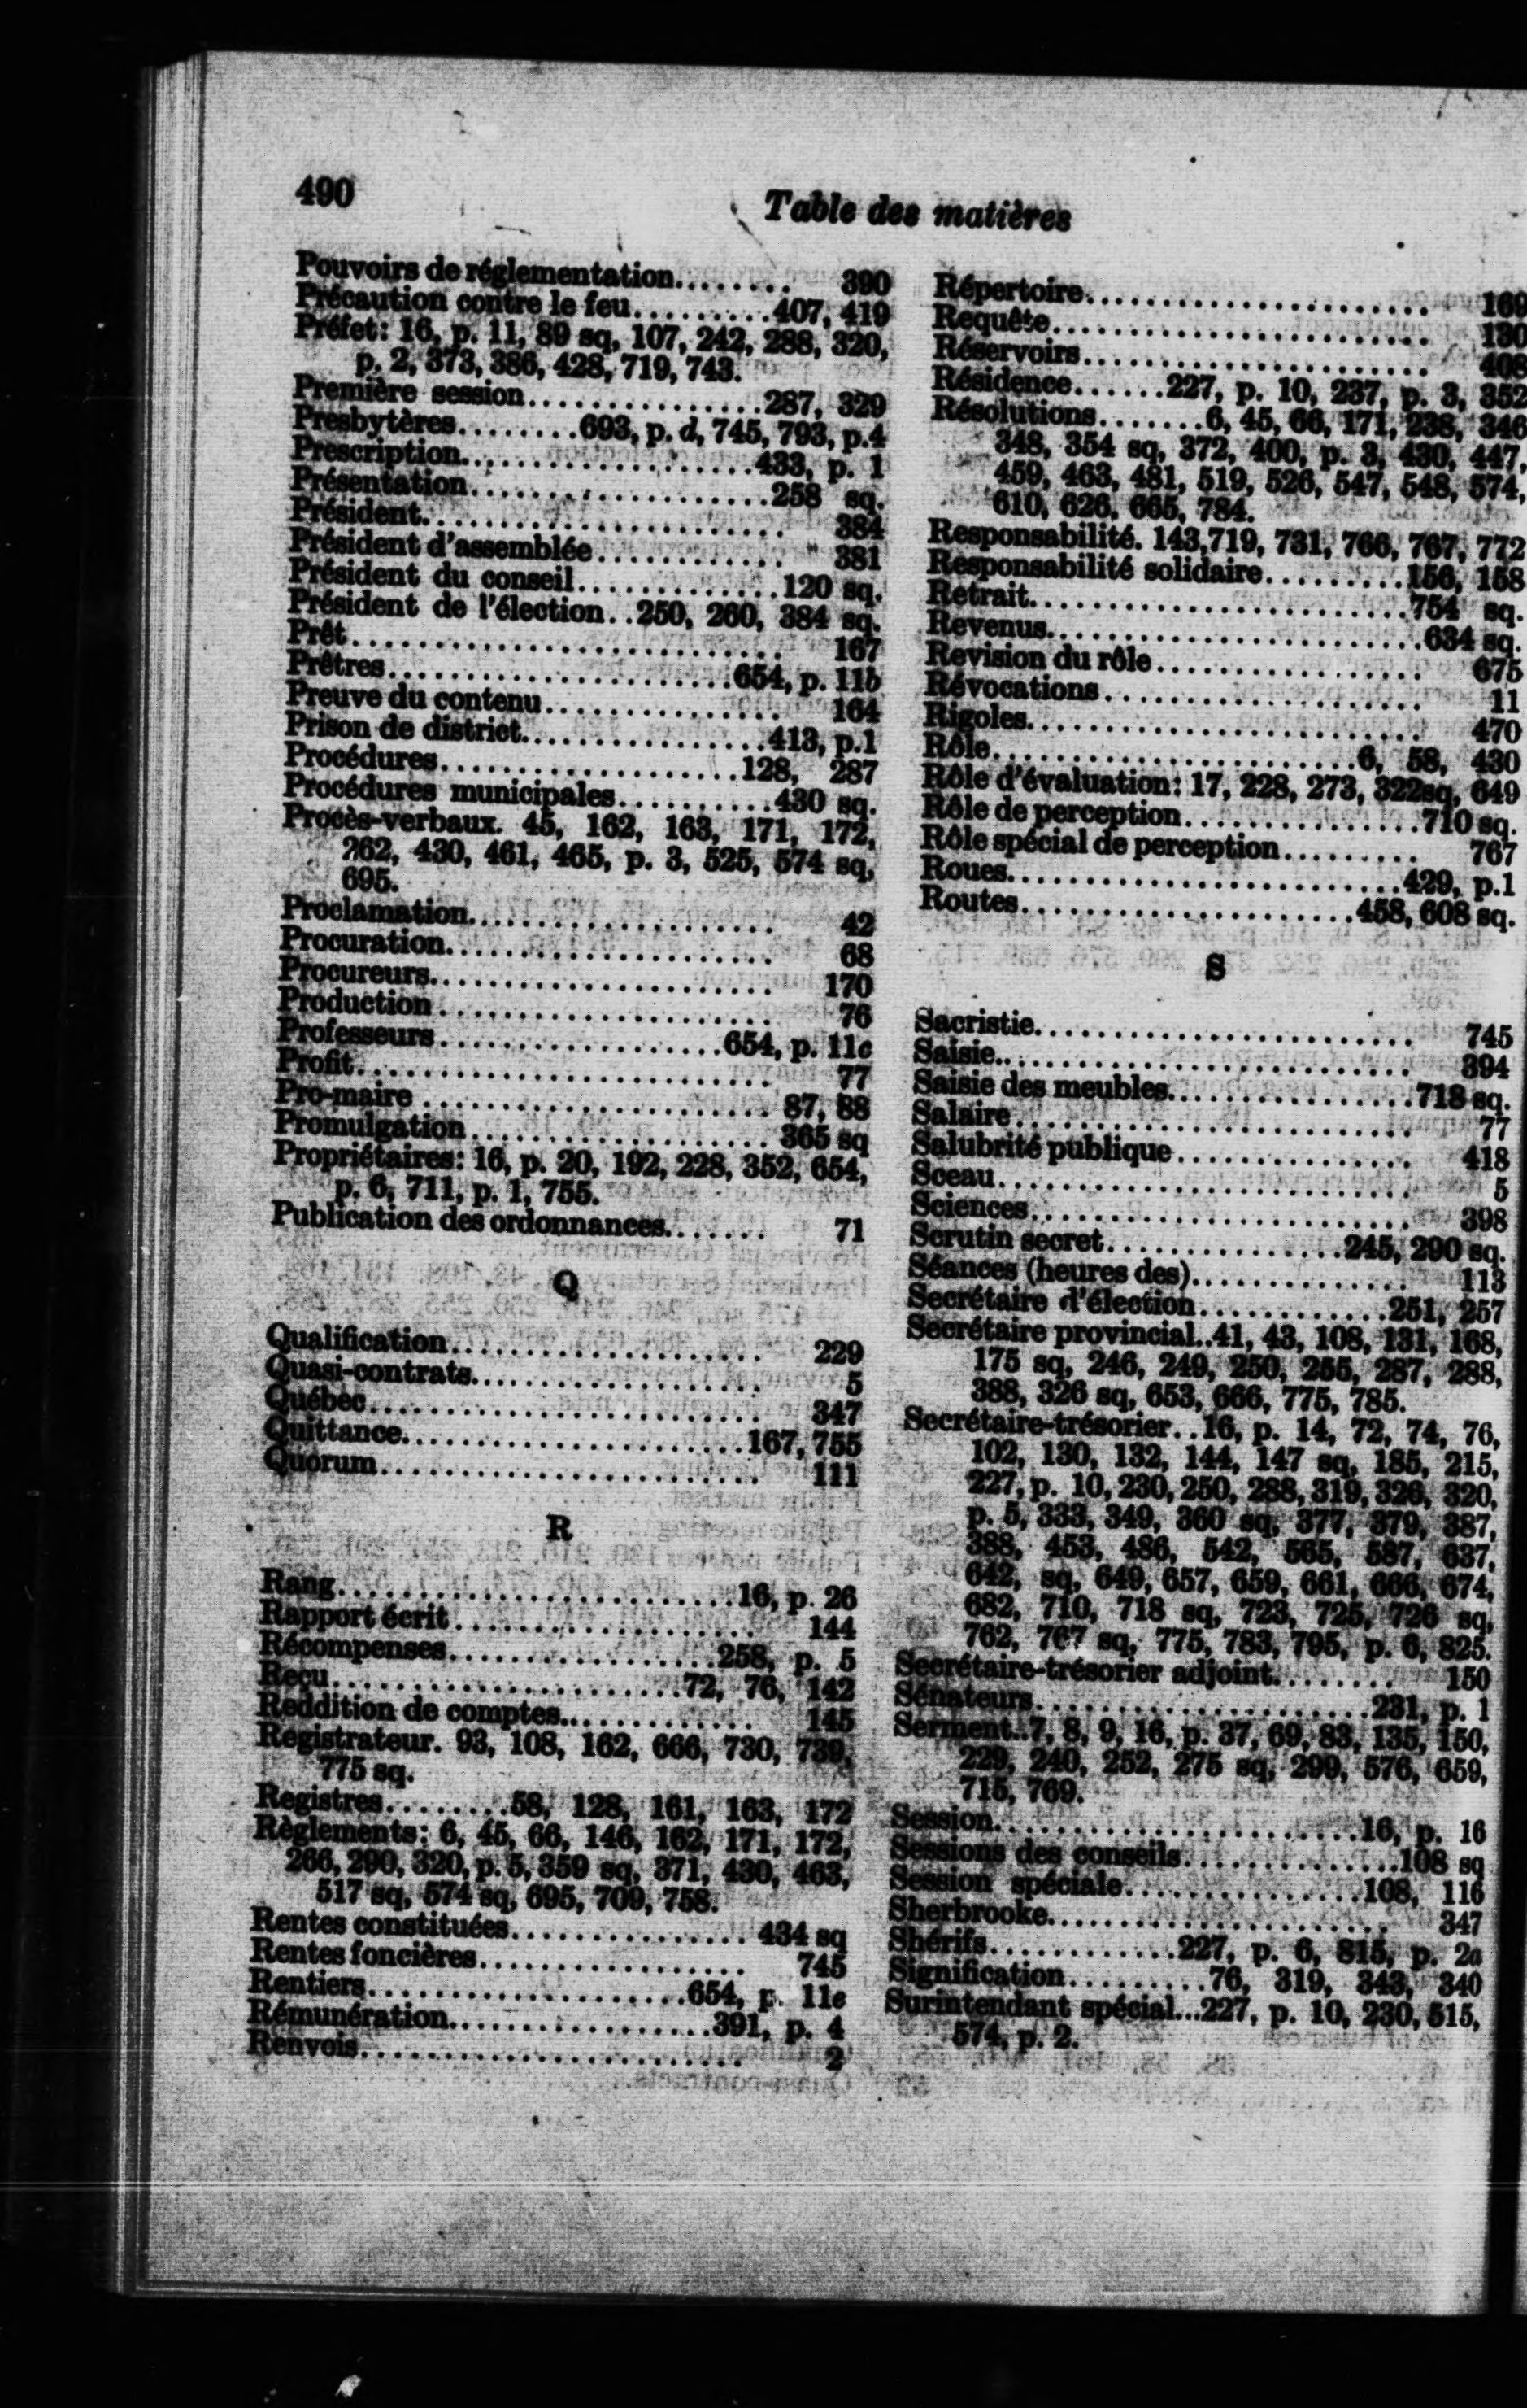 490
Table des matières
Pouvoirs de réglementation........ 390
Précaution contre le feu.........407, 419
Préfet: 16, p. 11, 89 sq, 107, 242, 288, 320,
p, 2, 373, 386, 428, 719, 743.
Première session...............287, 329
Presbytères........693, p. d, 745, 793, p.4
Prescription...................433, p. 1
Présentation...................258 sq.
Président....................... 384
Président d'assemblée............ 381
Président du conseil.............120 sq.
Président de l'élection..250, 260, 384 sq.
Prêt............................ 167
Prêtres......................654, p. 11b
Preuve du contenu............... 164
Prison de district................413, p.1
Procédures...................128, 287
Procédures municipales..........430 sq.
Procès-verbaux. 45, 162, 163, 171, 172,
262, 430, 461, 465, p. 3, 525, 574 sq,
695.
Proclamation.................... 42
Procuration..................... 68
Procureurs...................... 170
Production...................... 76
Professeurs..................654, p. 11c
Profit.......................... 77
Pro-maire ...................... 87, 88
Promulgation................... 365 sq
Propriétaires: 16, p. 20, 192, 228, 352, 654,
p. 6, 711, p. 1, 755.
Publication des ordonnances....... 71
Q
Qualification.................... 229
Quasi-contrats................... 5
Québec......................... 347
Quittance......................167, 755
Quorum........................ 111
R
Rang.........................16, p. 26
Rapport écrit................... 144
Récompenses.................258, p. 5
Reçu......................72, 76, 142
Reddition de comptes............. 145
Registrateur. 93, 108, 162, 666, 730, 739,
775 sq.
Registres........58, 128, 161, 163, 172
Règlements: 6, 45, 66, 146, 162, 171, 172,
266, 290, 320, p. 5, 359 sq, 371, 430, 463,
517 sq, 574 sq, 695, 709, 758.
Rentes constituées............... 434 sq
Rentes foncières................. 745
Rentiers....................654, p. 11e
Rémunération.................391, p. 4
Renvois........................ 2
Répertoire...................... 169
Requête........................ 130
Réservoirs...................... 408
Résidence......227, p. 10, 237, p. 3, 352
Résolutions.......6, 45, 66, 171, 238, 346
348, 354 sq, 372, 400, p. 3, 430, 447,
459, 463, 481, 519, 526, 547, 548, 574,
610, 626, 665, 784.
Responsabilité. 143,719, 731, 766, 767, 772
Responsabilité solidaire.........156, 158
Retrait........................754 sq.
Revenus.......................634 sq.
Revision du rôle................. 675
Révocations.................... 11
Rigoles......................... 470
Rôle.......................6, 58, 430
Rôle d'évaluation: 17, 228, 273, 322sq, 649
Rôle de perception...............710 sq.
Rôle spécial de perception......... 767
Roues.........................429, p.1
Routes.....................458, 608 sq.
S
Sacristie........................ 745
Saisie.......................... 394
Saisie des meubles................718 sq.
Salaire......................... 77
Salubrité publique............... 418
Sceau.......................... 5
Sciences........................ 398
Scrutin secret...............245, 290 sq.
Séances (heures des).............. 113
Secrétaire d'élection............251, 257
Secrétaire provincial..41, 43, 108, 131, 168,
175 sq, 246, 249, 250, 255, 287, 288,
388, 326 sq, 653, 666, 775, 785.
Secrétaire-trésorier..16, p. 14, 72, 74, 76,
102, 130, 132, 144, 147 sq, 185, 215,
227, p. 10, 230, 250, 288, 319, 326, 320,
p. 5, 333, 349, 360 sq, 377, 379, 387,
388, 453, 486, 542, 565, 587, 637,
642, sq, 649, 657, 659, 661, 666, 674,
682, 710, 718 sq, 723, 725, 726 sq,
762, 767 sq, 775, 783, 795, p. 6, 825.
Secrétaire-trésorier adjoint........ 150
Sénateurs.....................231, p. 1
Serment..7, 8, 9, 16, p. 37, 69, 83, 135, 150,
229, 240, 252, 275 sq, 299, 576, 659,
715, 769.
Session.......................16, p. 16
Sessions des conseils..............108 sq
Session spéciale...............108, 116
Sherbrooke...................... 347
Shérifs............227, p. 6, 815, p. 2a
Signification.........76, 319, 343, 340
Surintendant spécial...227, p. 10, 230, 515,
574, p. 2.